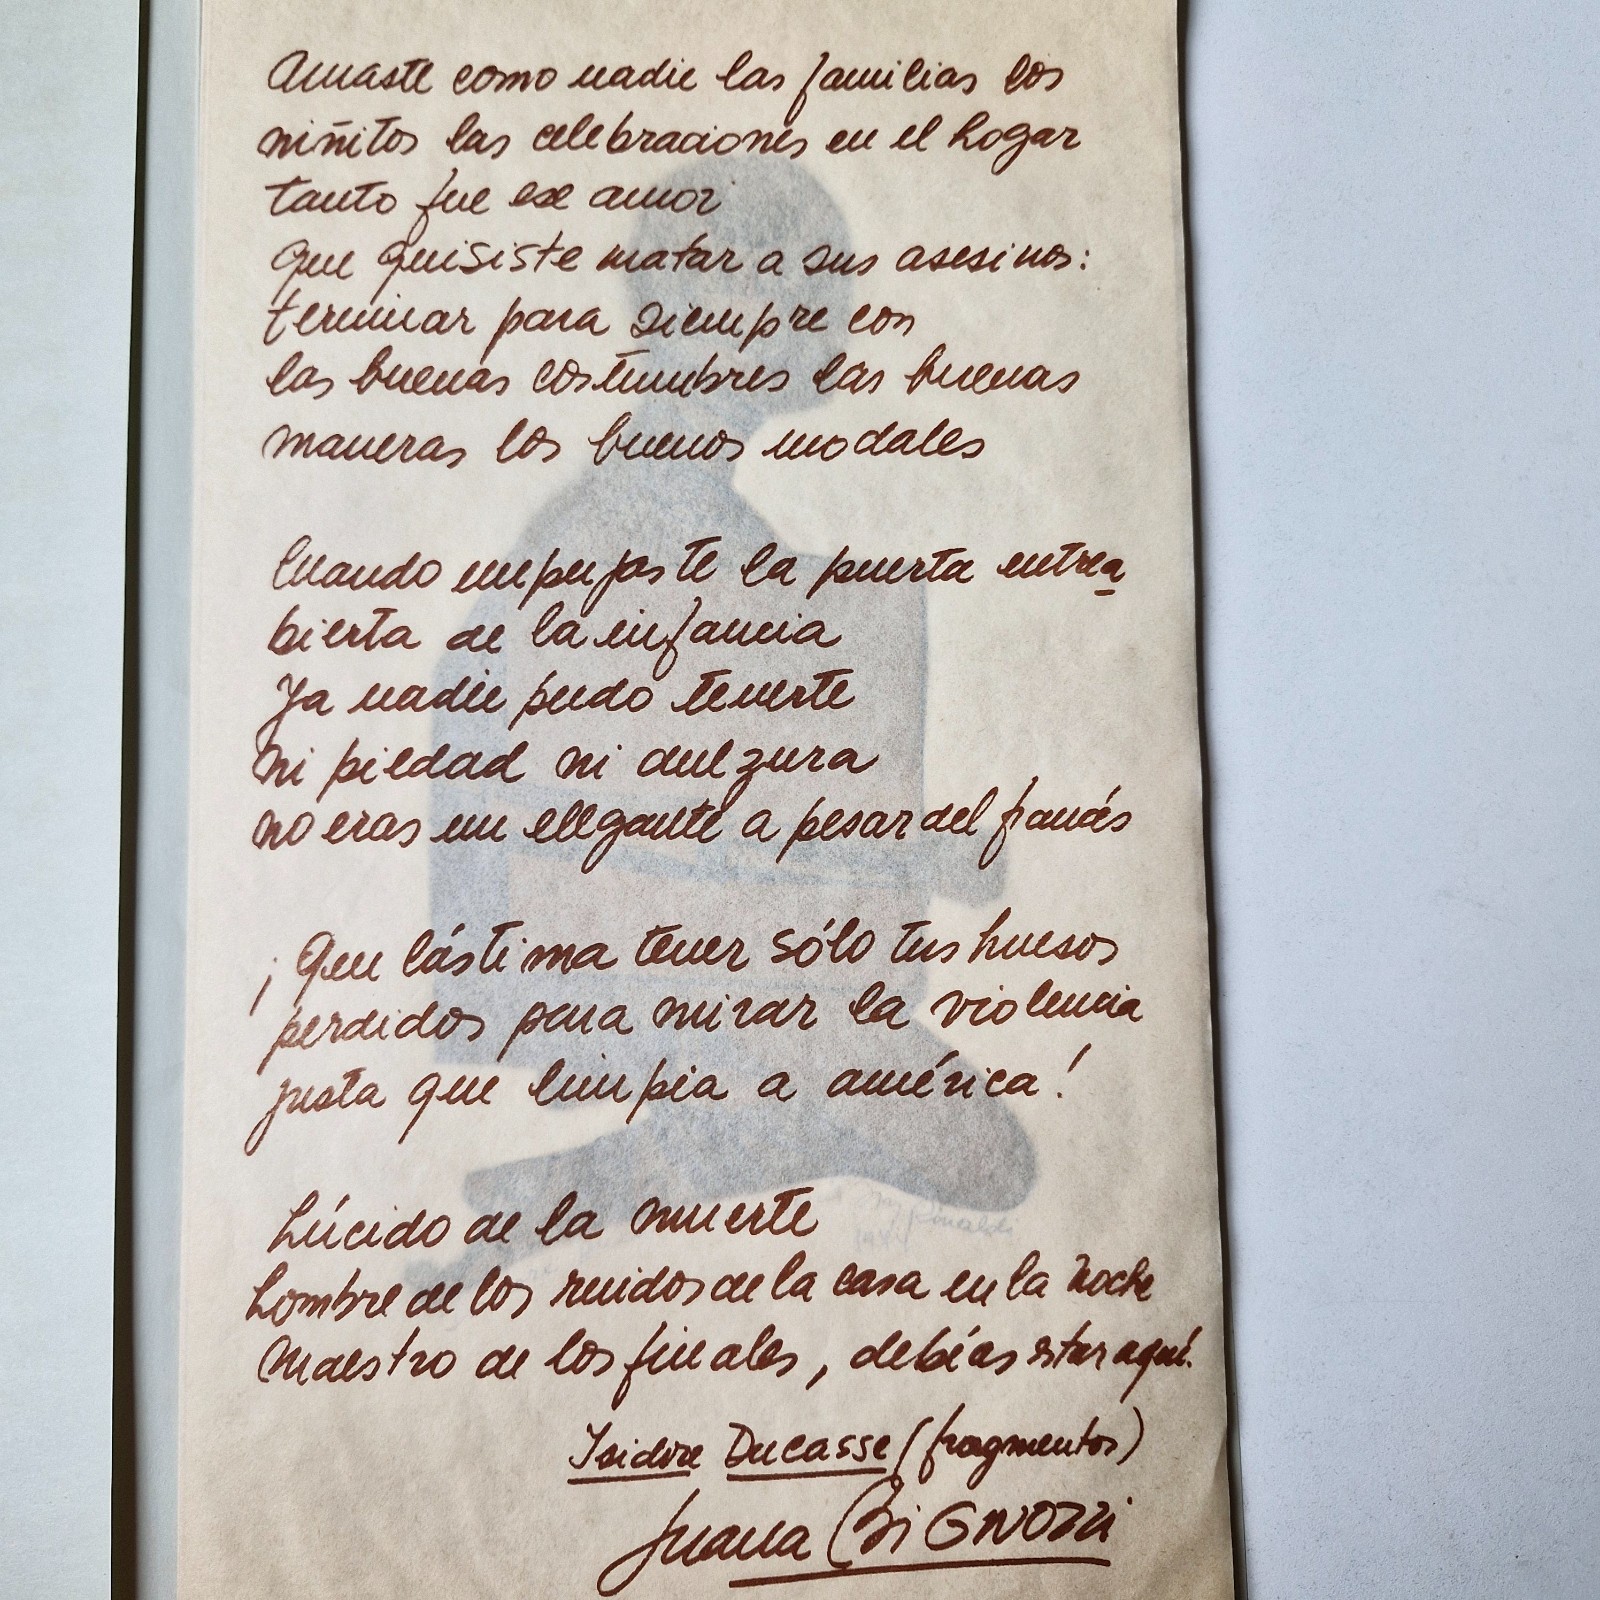 Amaste como nadie las familias los
niñitos las celebraciones en el hogar
tanto fue ese amor
que quisiste matar a sus asesinos:
terminar para siempre con
las buenas costumbres las buenas
maneras los buenos modales
Cuando empujaste la puerta entrea
bierta de la infancia
ya nadie pudo tenerte
ni piedad ni dulzura
no eras un elegante a pesar del francés
¡Que lástima tener sólo tus huesos
perdidos para mirar la violencia
justa que limpia a américa!
Lúcido de la muerte
hombre de los ruidos de la casa en la noche
maestro de los finales, debías estar aquí.
Isidore Ducasse (fragmentos)
Juana Bignozzi
Rinaldi